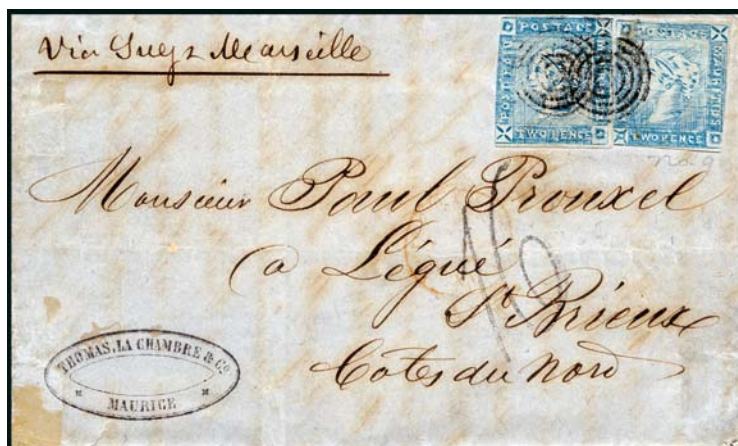 Via Suez Marseille
POSTAGE POSTAGE
MAURITIUS
TWO PENCE TWO PENCE
No 9
Monsieur Paul Prouxel
a Légué
St Brieux
Côtes du Nord
THOMAS, LA CHAMBRE & Co.
MAURICE